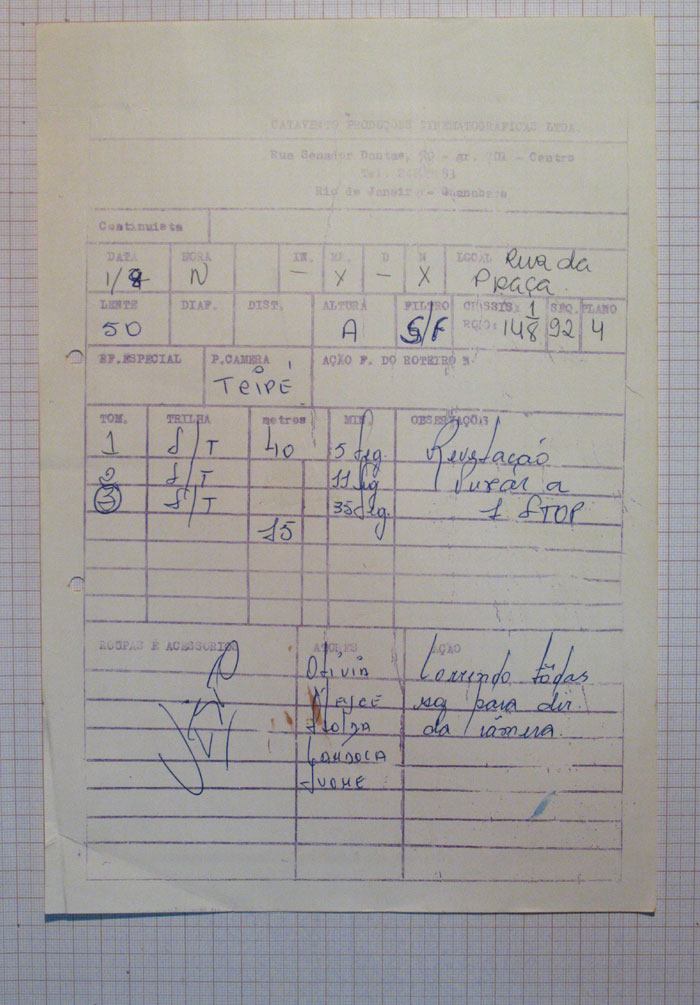 CATAVENTO PRODUÇÕES CINEMATOGRAFICAS LTDA.
Rua Senador Dantas, - gr. - Centro
Tel.
Rio de Janeiro - Guanabara
Continuista
DATA HORA IN. EX. D N LOCAL Rua da
N - X - X Praça.
LENTE DIAF. DIST. ALTURA FILTRO CHASSIS: 1 SEQ. PLANO
50 A S/F ROLO: 148 92 4
EF.ESPECIAL P.CAMERA AÇÃO F. DO ROTEIRO
TRIPÉ
TOM. TRILHA metros MIN. OBSERVAÇÕES
1 S/T 40 5 seg. Revelação
2 S/T 11 seg Puxar a
3 S/T 35 seg. 1 STOP
15
ROUPAS E ACESSORIOS ATORES AÇÃO
OLÍVIA Correndo tôdas
NEYCE para dir.
ISOLDA da câmera.
IVONE